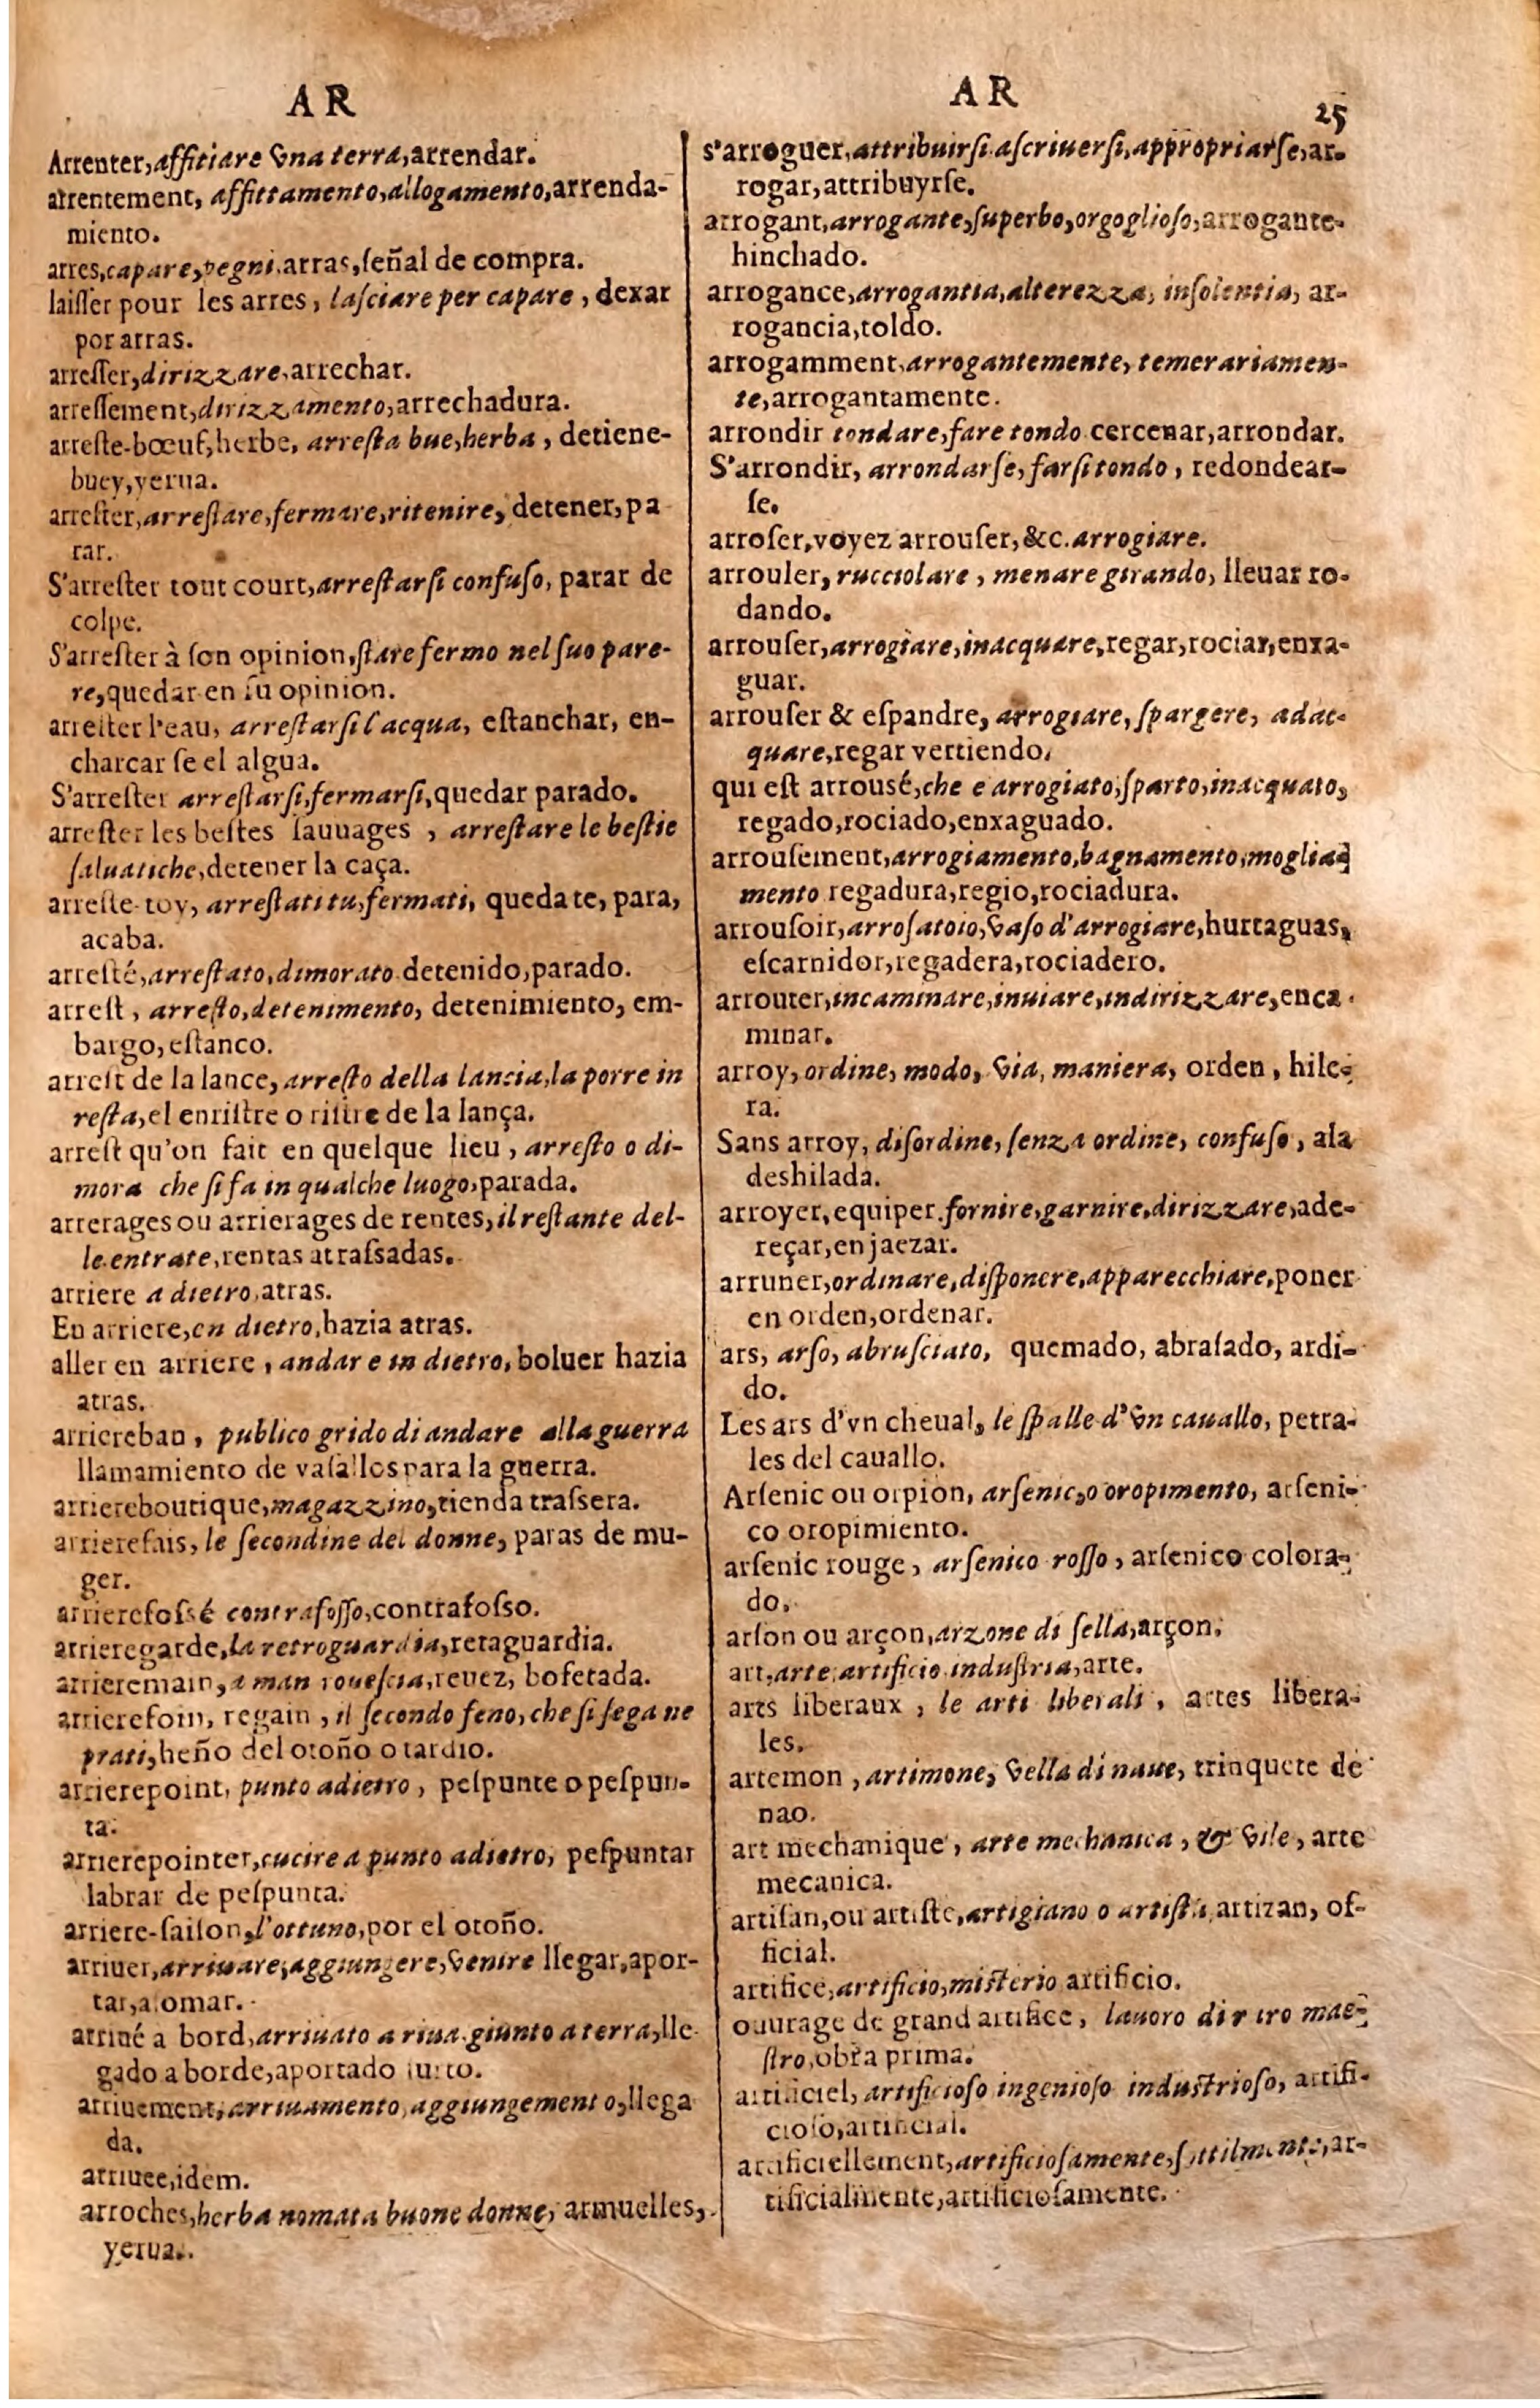 AR
Arrenter, affitiare vna terra, arrendar.
arrentement, affittamento, allogamento, arrenda-
miento.
arres, capare, pegni. arras, ſeñal de compra.
laiſſer pour les arres, laſciare per capare, dexar
por arras.
arreſſer, dirizzare, arrechar.
arreſſement, dirizzamento, arrechadura.
arreſte-bœuf, herbe, arreſta bue, herba, detiene-
buey, yerua.
arreſter, arreſtare, fermare, ritenire, detener, pa
rar.
S'arreſter tout court, arreſtarſi confuſo, parar de
colpe.
S'arreſter à ſon opinion, ſtare fermo nel ſuo pare-
re, quedar en ſu opinion.
arreſter l'eau, arreſtarſi l'acqua, eſtanchar, en-
charcar ſe el algua.
S'arreſter arreſtarſi, fermarſi, quedar parado.
arreſter les beſtes ſauuages, arreſtare le beſtie
ſaluatiche, detener la caça.
arreſte-toy, arreſtati tu, fermati, queda te, para,
acaba.
arreſté, arreſtato, dimorato detenido, parado.
arreſt, arreſto, detenimento, detenimiento, em-
bargo, eſtanco.
arreſt de la lance, arreſto della lancia, la porre in
reſta, el enriſtre o riſtre de la lança.
arreſt qu'on fait en quelque lieu, arreſto o di-
mora che ſi fa in qualche luogo, parada.
arrerages ou arrierages de rentes, il reſtante del-
le entrate, rentas atraſsadas.
arriere a dietro, atras.
En arriere, en dietro, hazia atras.
aller en arriere, andar e in dietro, boluer hazia
atras.
arriereban, publico grido di andare alla guerra
llamamiento de vaſallos para la guerra.
arriereboutique, magazzino, tienda traſsera.
arrierefais, le ſecondine del donne, paras de mu-
ger.
arrierefoſsé contrafoſſo, contrafoſſo.
arrieregarde, la retroguardia, retaguardia.
arrieremain, a man roueſcia, reuez, bofetada.
arrierefoin, regain, il ſecondo feno, che ſi ſega ne
prati, heño del otoño o tardio.
arrierepoint, punto adietro, peſpunte o peſpun-
ta.
arrierepointer, cucire a punto adietro, peſpuntar
labrar de peſpunta.
arriere-ſaiſon, l'ottuno, por el otoño.
arriuer, arriuare, aggiungere, venire llegar, apor-
tar, aſomar.
arriué a bord, arriuato a riua. giunto a terra, lle-
gado a borde, aportado
arriuement, arriuamento, aggiungemento, llega
da.
arriuee, idem.
arroches, herba nomata buone donne, armuelles,
yerua.
AR
25
s'arroguer, attribuirſi aſcriuerſi, appropriarſe, ar-
rogar, attribuyrſe.
arrogant, arrogante, ſuperbo, orgoglioſo, arrogante-
hinchado.
arrogance, arrogantia, alterezza, inſolentia, ar-
rogancia, toldo.
arrogamment, arrogantemente, temerariamen-
te, arrogantamente.
arrondir tondare, fare tondo cercenar, arrondar.
S'arrondir, arrondarſe, farſi tondo, redondear-
ſe.
arroſer, voyez arrouſer, &c. arrogiare.
arrouler, rucciolare, menare girando, lleuar ro-
dando.
arrouſer, arrogiare, inacquare, regar, rociar, enxa-
guar.
arrouſer & eſpandre, arrogiare, ſpargere, adac-
quare, regar vertiendo.
qui eſt arrousé, che e arrogiato, ſparto, inacquato,
regado, rociado, enxaguado.
arrouſement, arrogiamento, bagnamento, moglia-
mento regadura, regio, rociadura.
arrouſoir, arroſatoio, vaſo d'arrogiare, hurtaguas,
eſcarnidor, regadera, rociadero.
arrouter, incaminare, inuiare, indirizzare, enca-
minar.
arroy, ordine, modo, via, maniera, orden, hile-
ra.
Sans arroy, diſordine, ſenza ordine, confuſo, ala
deshilada.
arroyer, equiper. fornire, garnire, dirizzare, ade-
reçar, enjaezar.
arruner, ordinare, diſponere, apparecchiare, poner
en orden, ordenar.
ars, arſo, abruſciato, quemado, abraſado, ardi-
do.
Les ars d'vn cheual, le ſpalle d'vn cauallo, petra-
les del cauallo.
Arſenic ou orpion, arſenic, o oropimento, arſeni-
co oropimiento.
arſenic rouge, arſenico roſſo, arſenico colora-
do.
arſon ou arçon, arzone di ſella, arçon.
art, arte, artificio induſtria, arte.
arts liberaux, le arti liberali, artes libera-
les.
artemon, artimone, vella di naue, trinquete de
nao.
art mechanique, arte mechanica, & vile, arte
mecanica.
artiſan, ou artiſte, artigiano o artiſta, artizan, of-
ficial.
artifice, artificio, miſterio artificio.
ouurage de grand artifice, lauoro di mae-
ſtro, obra prima.
artificiel, artificioſo ingenioſo induſtrioſo, artifi-
cioſo, artificial.
artificiellement, artificioſamente, ſottilmente, ar-
tificialmente, artificioſamente.